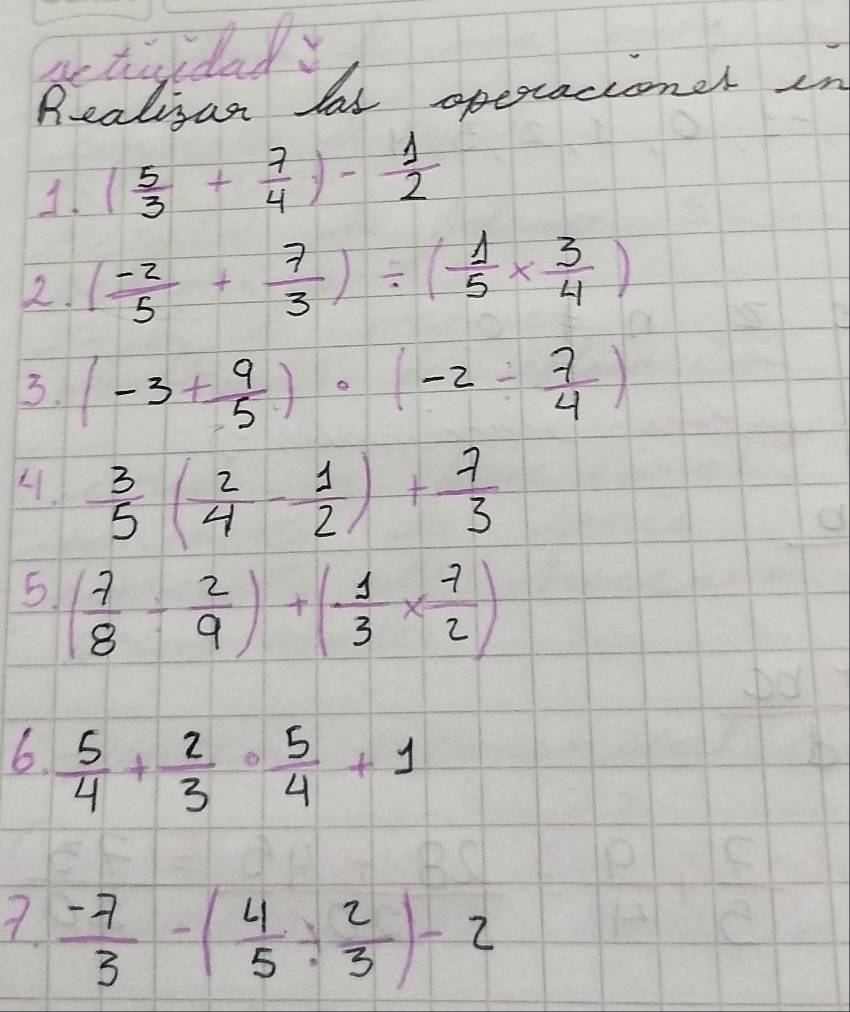 actividad:
Realizar las operaciones in
1. (5/3 + 7/4) - 1/2
2. (-2/5 + 7/3) ÷ (1/5 × 3/4)
3. (-3 + 9/5) · (-2 ÷ 7/4)
4. 3/5 (2/4 - 1/2) + 7/3
5. (7/8 ÷ 2/9) + (1/3 × 7/2)
6. 5/4 + 2/3 · 5/4 + 1
7. -7/3 - (4/5 ÷ 2/3) - 2